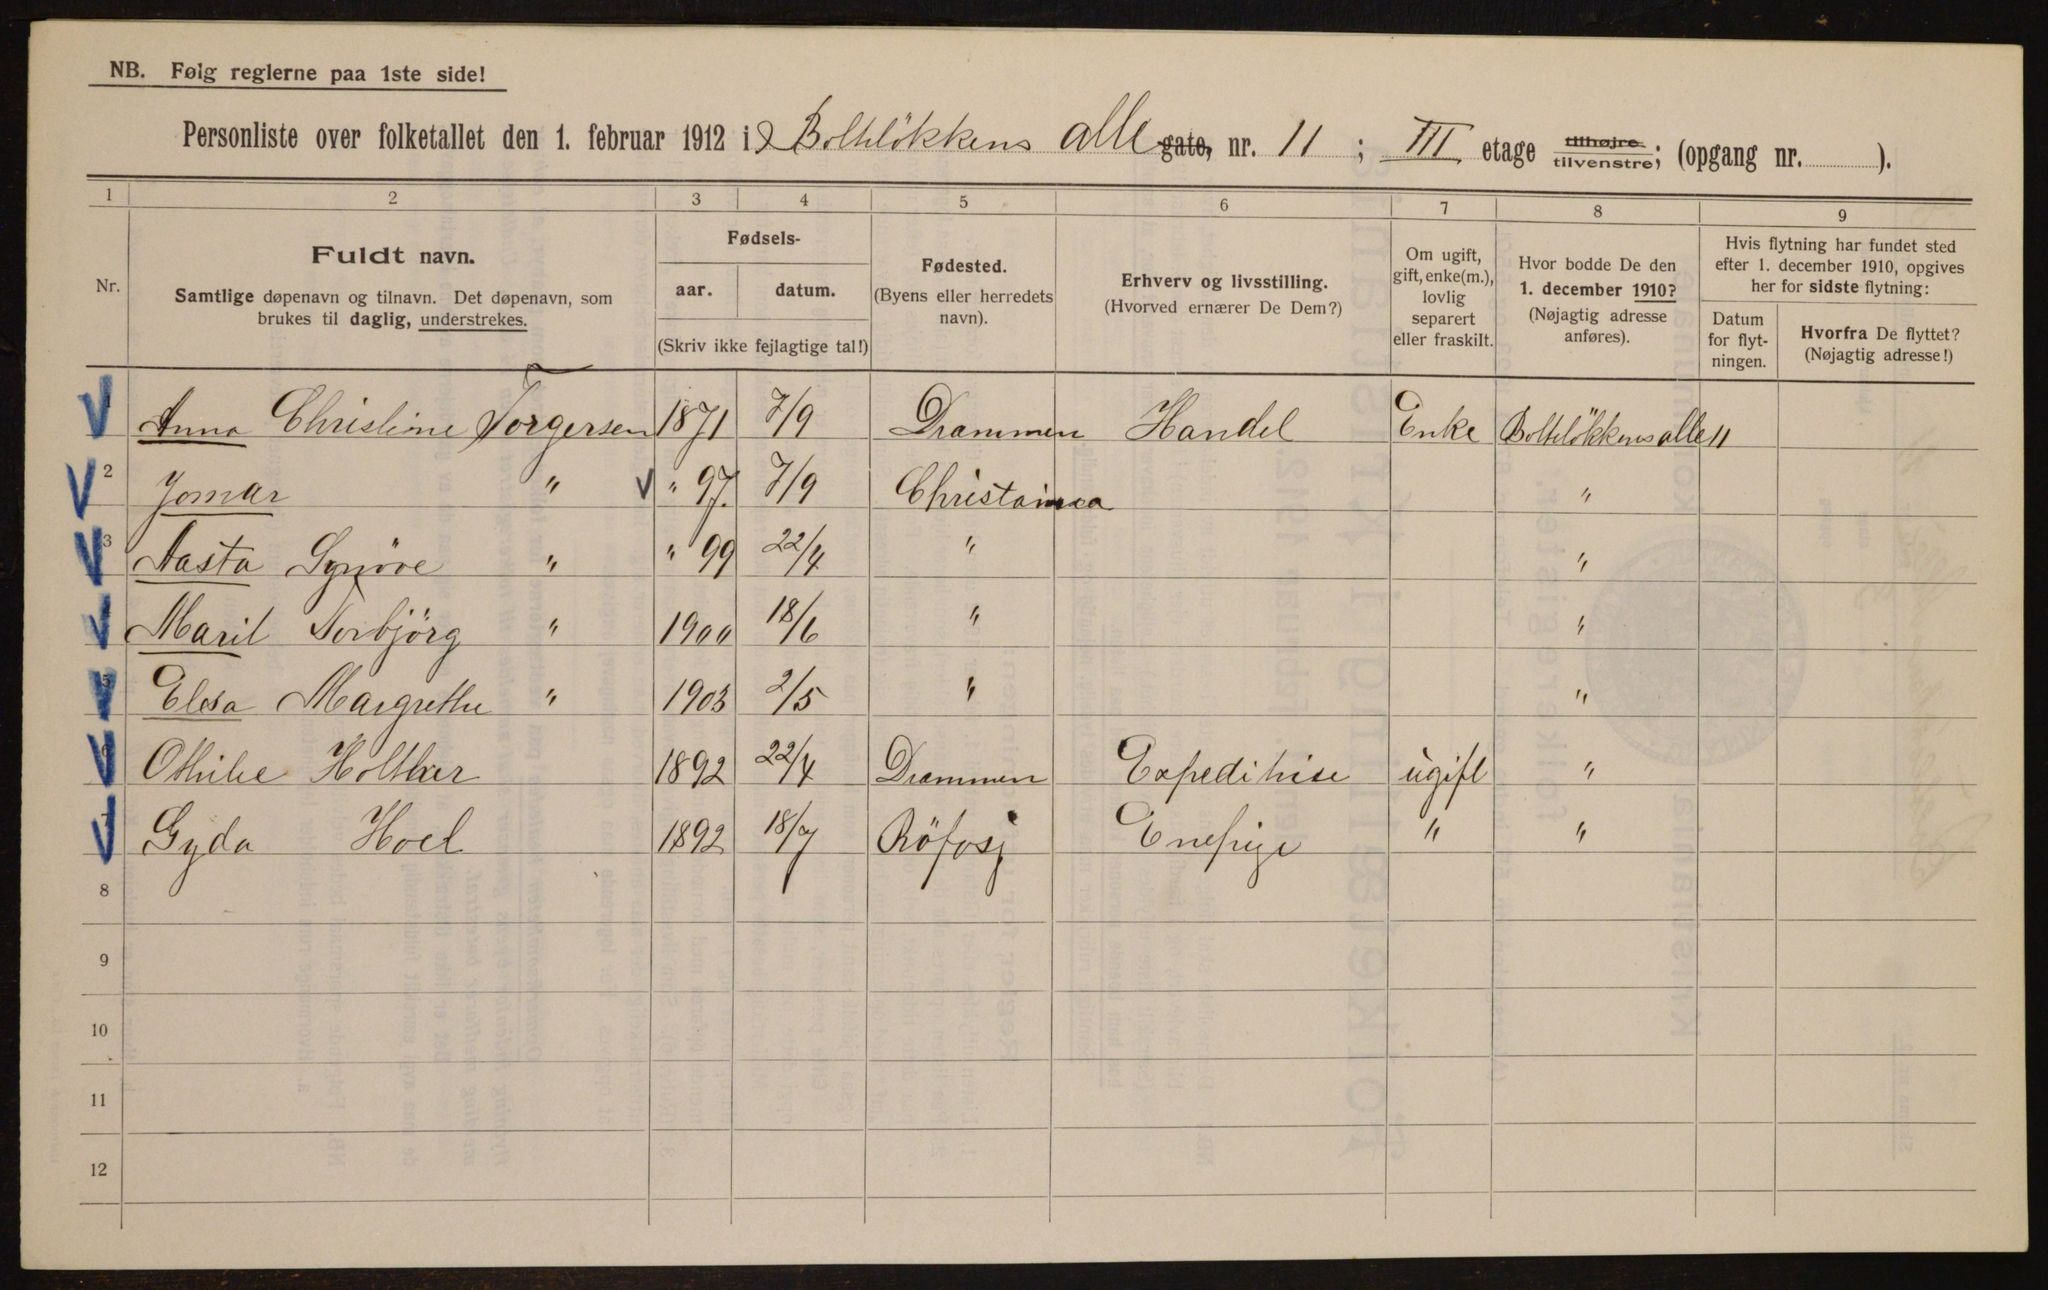 NB. Følg reglerne paa 1ste side!
Personliste over folketallet den 1. februar 1912 i Bolteløkkens alle gate, nr. 11 ; III etage tilhøjre tilvenstre; (opgang nr. ).
1 2 3 4 5 6 7 8 9
Nr.
Fuldt navn.
Samtlige døpenavn og tilnavn. Det døpenavn, som
brukes til daglig, understrekes.
Fødsels-
aar. datum.
(Skriv ikke fejlagtige tal!)
Fødested.
(Byens eller herredets
navn).
Erhverv og livsstilling.
(Hvorved ernærer De Dem?)
Om ugift,
gift, enke(m.),
lovlig
separert
eller fraskilt.
Hvor bodde De den
1. december 1910?
(Nøjagtig adresse
anføres).
Hvis flytning har fundet sted
efter 1. december 1910, opgives
her for sidste flytning:
Datum
for flyt-
ningen.
Hvorfra De flyttet?
(Nøjagtig adresse!)
1 Anna Christine Torgersen 1871 7/9 Drammen Handel Enke Bolteløkkens alle 11
2 Jomar " " 97. 7/9 Christania "
3 Aasta Synöve " " 99 22/4 " "
Marit Torbjörg " 1900 18/6 " "
5 Elesa Margrethe " 1903 2/5 " "
6 Othilie Holther 1892 22/4 Drammen Expeditrise ugift "
7 Gyda Hoel 1892 18/7 Enepige " "
8
9
10
11
12